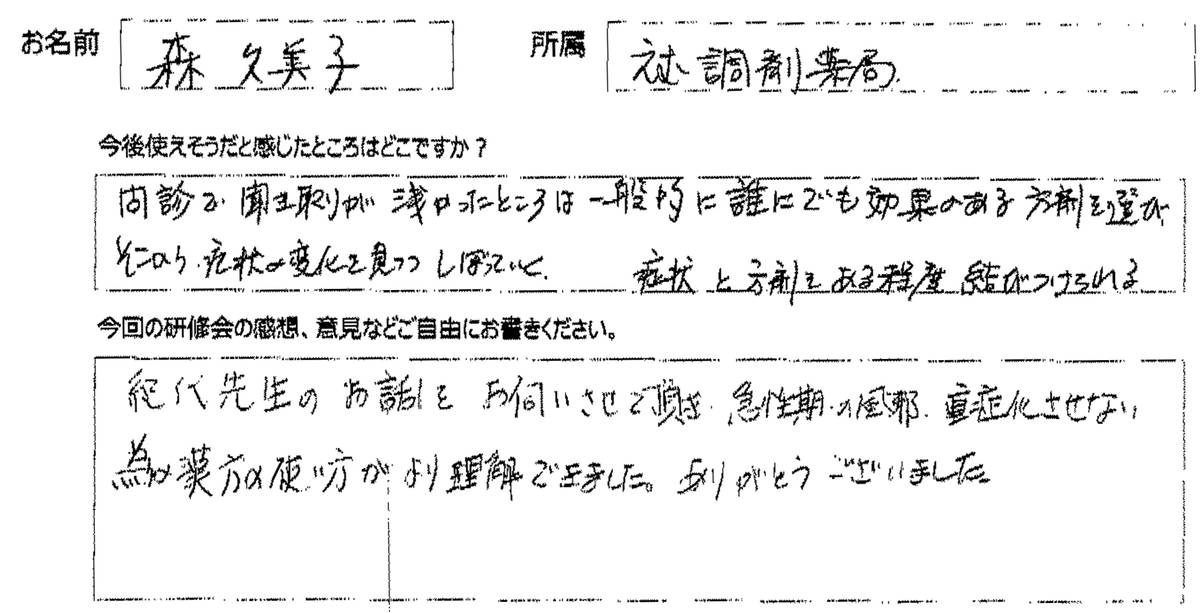 お名前 森 久美子 所属 えむ調剤薬局
今後使えそうだと感じたところはどこですか？
問診で聞き取りが浅かったところは一般的に誰にでも効果のある方剤を選び
そこから、症状の変化を見つつしぼっていく. 症状と方剤をある程度結びつけられる
今回の研修会の感想、意見などご自由にお書きください。
紀代先生のお話をお伺いさせて頂き、急性期の風邪、重症化させない
為の漢方の使い方がより理解できました。ありがとうございました